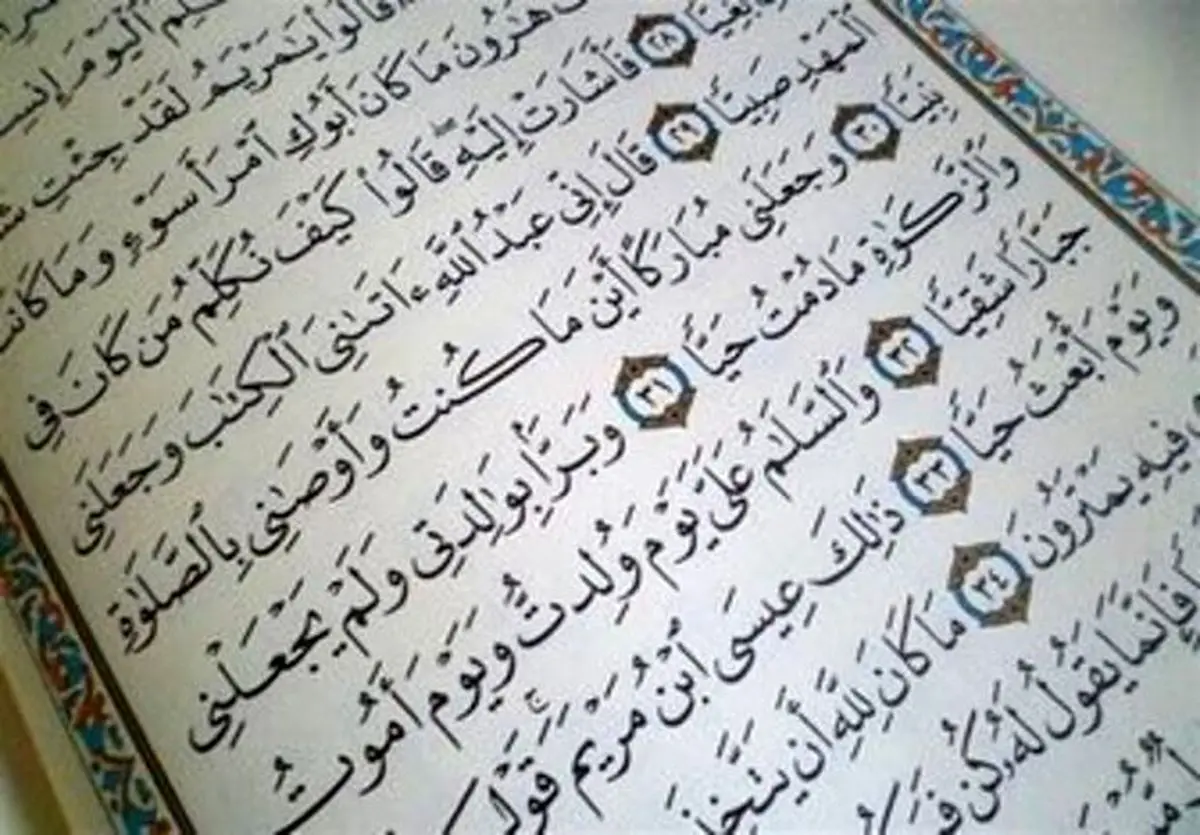 ٱلْيَوْمَ
قَالُوا۟ يَٰمَرْيَمُ لَقَدْ جِئْتِ
هَٰرُونَ مَا كَانَ أَبُوكِ ٱمْرَأَ سَوْءٍ وَمَا كَانَتْ
بَغِيًّا ٢٨ فَأَشَارَتْ إِلَيْهِ قَالُوا۟ كَيْفَ نُكَلِّمُ مَن كَانَ فِي
ٱلْمَهْدِ صَبِيًّا ٢٩ قَالَ إِنِّي عَبْدُ ٱللَّهِ ءَاتَىٰنِيَ ٱلْكِتَٰبَ وَجَعَلَنِي
نَبِيًّا ٣٠ وَجَعَلَنِي مُبَارَكًا أَيْنَ مَا كُنتُ وَأَوْصَٰنِي بِٱلصَّلَوٰةِ
وَٱلزَّكَوٰةِ مَا دُمْتُ حَيًّا ٣١ وَبَرًّۢا بِوَٰلِدَتِي وَلَمْ يَجْعَلْنِي
جَبَّارًا شَقِيًّا ٣٢ وَٱلسَّلَٰمُ عَلَيَّ يَوْمَ وُلِدتُّ وَيَوْمَ أَمُوتُ
وَيَوْمَ أُبْعَثُ حَيًّا ٣٣ ذَٰلِكَ عِيسَى ٱبْنُ مَرْيَمَ قَوْلَ
فِيهِ يَمْتَرُونَ ٣٤ مَا كَانَ لِلَّهِ أَن يَتَّخِذَ
فَإِنَّمَا يَقُولُ لَهُۥ كُن